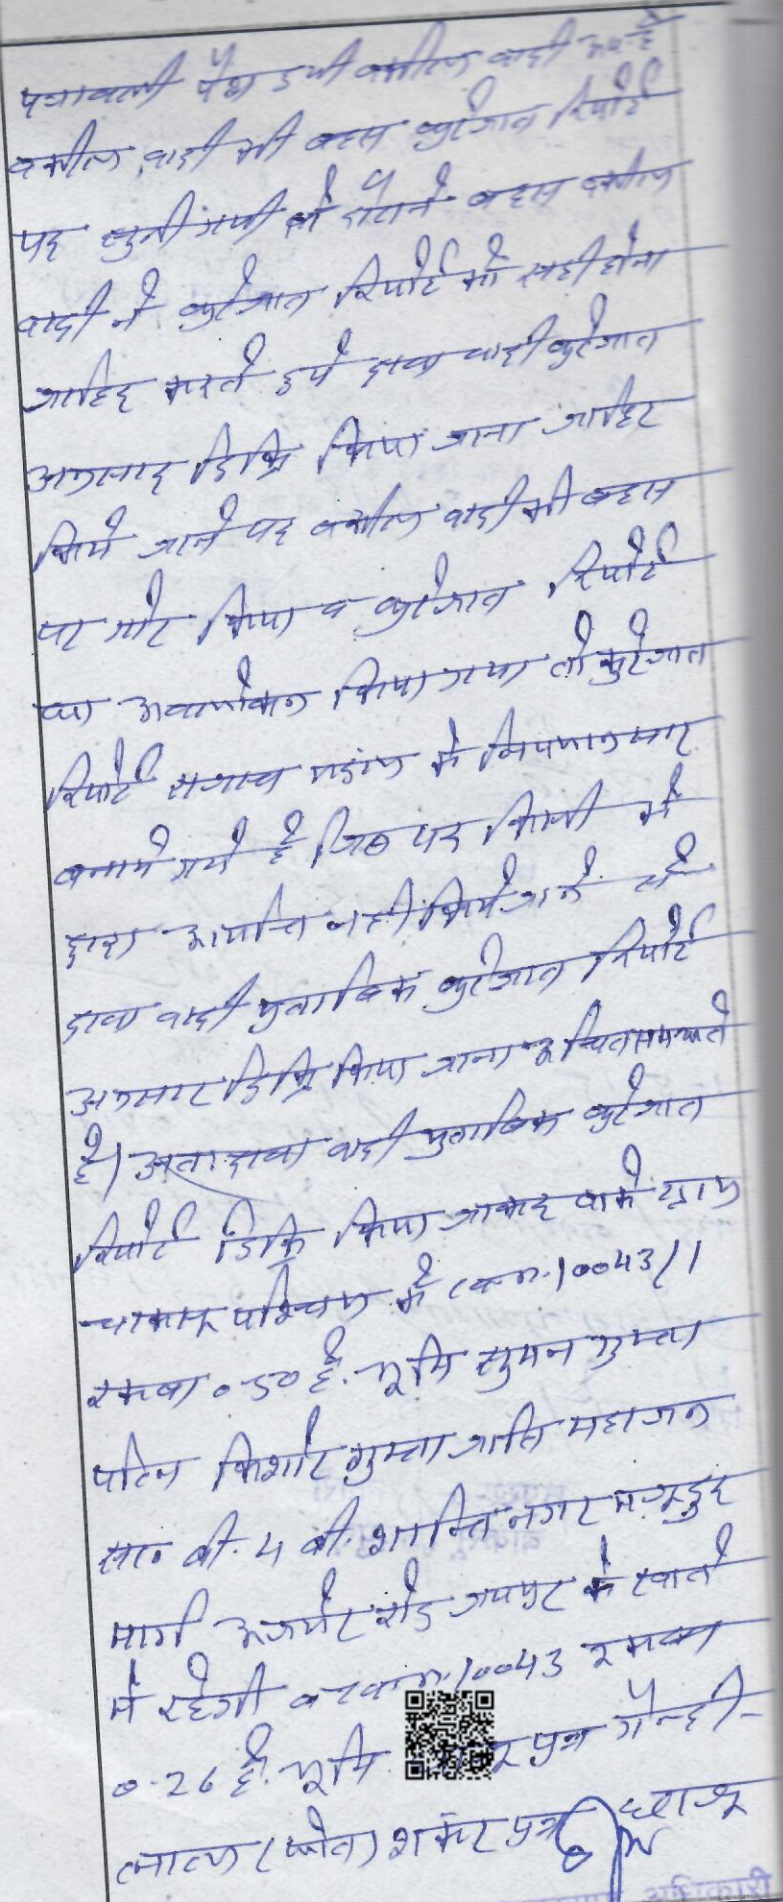 पत्रावली पेश हुयी वकील वादी उप. है
वकील वादी की बहस कुर्रेजात रिपोर्ट
पर सुनी गयी दौराने बहस वकील
वादी ने कुर्रेजात रिपोर्ट को सही होना
जाहिर करते हुये दावा वादी कुर्रेजात
अनुसार डिक्रि किया जाना जाहिर
किये जाने पर वकील वादी की बहस
पर गोर किया व कुर्रेजात रिपोर्ट
का अवलोकन किया गया तो कुर्रेजात
रिपोर्ट राजस्व मंडल के नियमानुसार
बनाये गये है जिस पर किसी के
द्वारा आपत्ति नही किये जाने से
दावा वादी मुताबिक कुर्रेजात रिपोर्ट
अनुसार डिक्रि किया जाना उचित समझते
है। अतः दावा वादी मुताबिक कुर्रेजात
रिपोर्ट डिक्रि किया जाकर वाके ग्राम
चाकसू पश्चिम के ख.न. 10043/1
रकबा 0.50 है. भूमि सुमन गुप्ता
पत्नि किशोर गुप्ता जाति महाजन
सा. बी. 4 बी. शान्ति नगर
मार्ग अजमेर रोड जयपुर के खाते
मे रहेगी व ख.न. 10043 रकबा
0.26 है. भूमि पुत्र गेन्दी-
लाल (फोत) शंकर पुत्र
अधिकारी